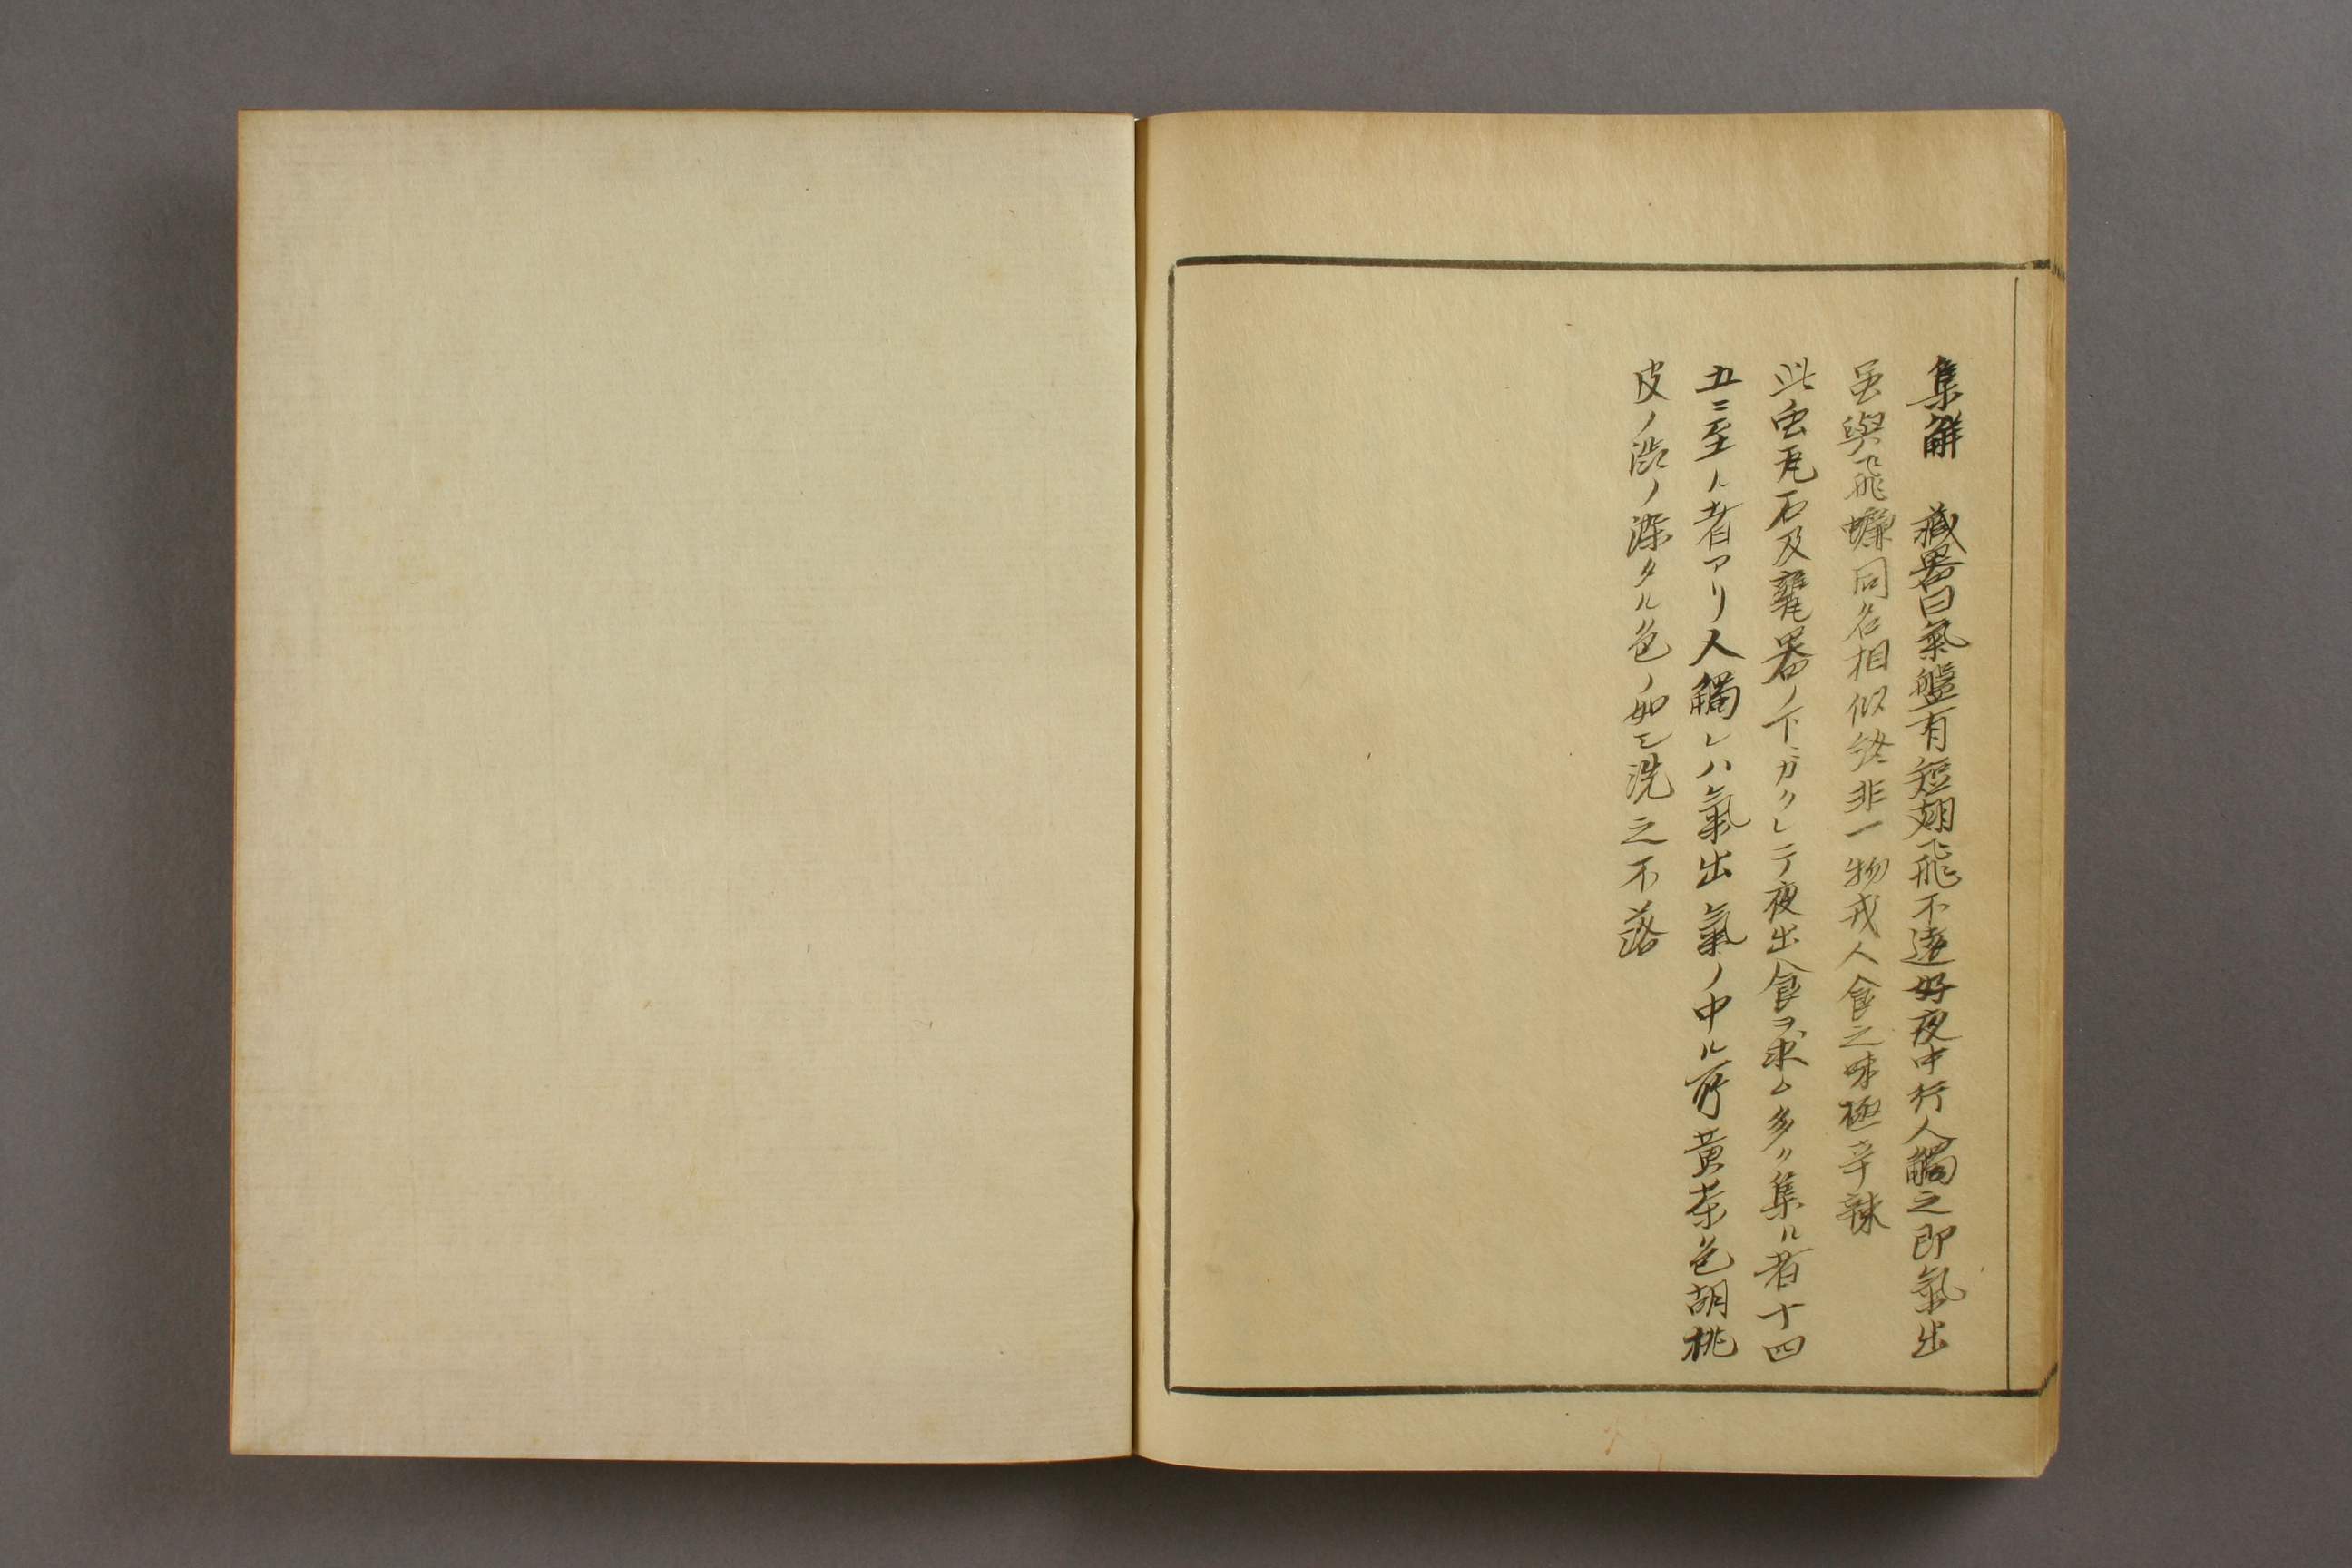 集解　藏器曰氣盤有短翅飛不遠好夜中行人觸之即氣出
虽與飛蠊同名相似終非一物戎人食之味極辛辣
此虫瓦石及甕器ノ下ニガクレテ夜出食ヲ求ム多ク集ル者十四
五ニ至ル者アリ人觸レハ氣出氣ノ中ル所黄茶色胡桃
皮ノ澁ノ染タル色ノ如シ洗之不落